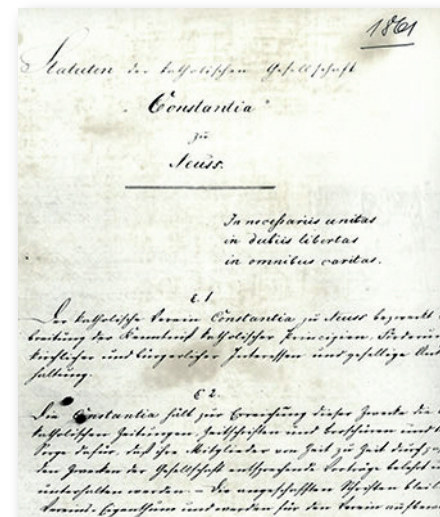 1861
Statuten der katholischen Gesellschaft
Constantia
zu
Neuss.
In necessariis unitas
in dubiis libertas
in omnibus caritas.
§. 1.
Der katholische Verein Constantia zu Neuss bezweckt
breitung der Kenntniß katholischer Principien, Förderun
kirchlicher und bürgerlicher Interessen und gesellige Un
haltung.
§ 2.
Die Constantia hält zur Erreichung dieser Zwecke die
katholischen Zeitungen, Zeitschriften und Broschüren und
Sorge dafür, daß ihre Mitglieder von Zeit zu Zeit durch
den Zwecken der Gesellschaft entsprechende Vorträge belehrt u
unterhalten werden. – Die angeschafften Schriften bleib
Vereins-Eigenthum und werden für den Verein aufbew